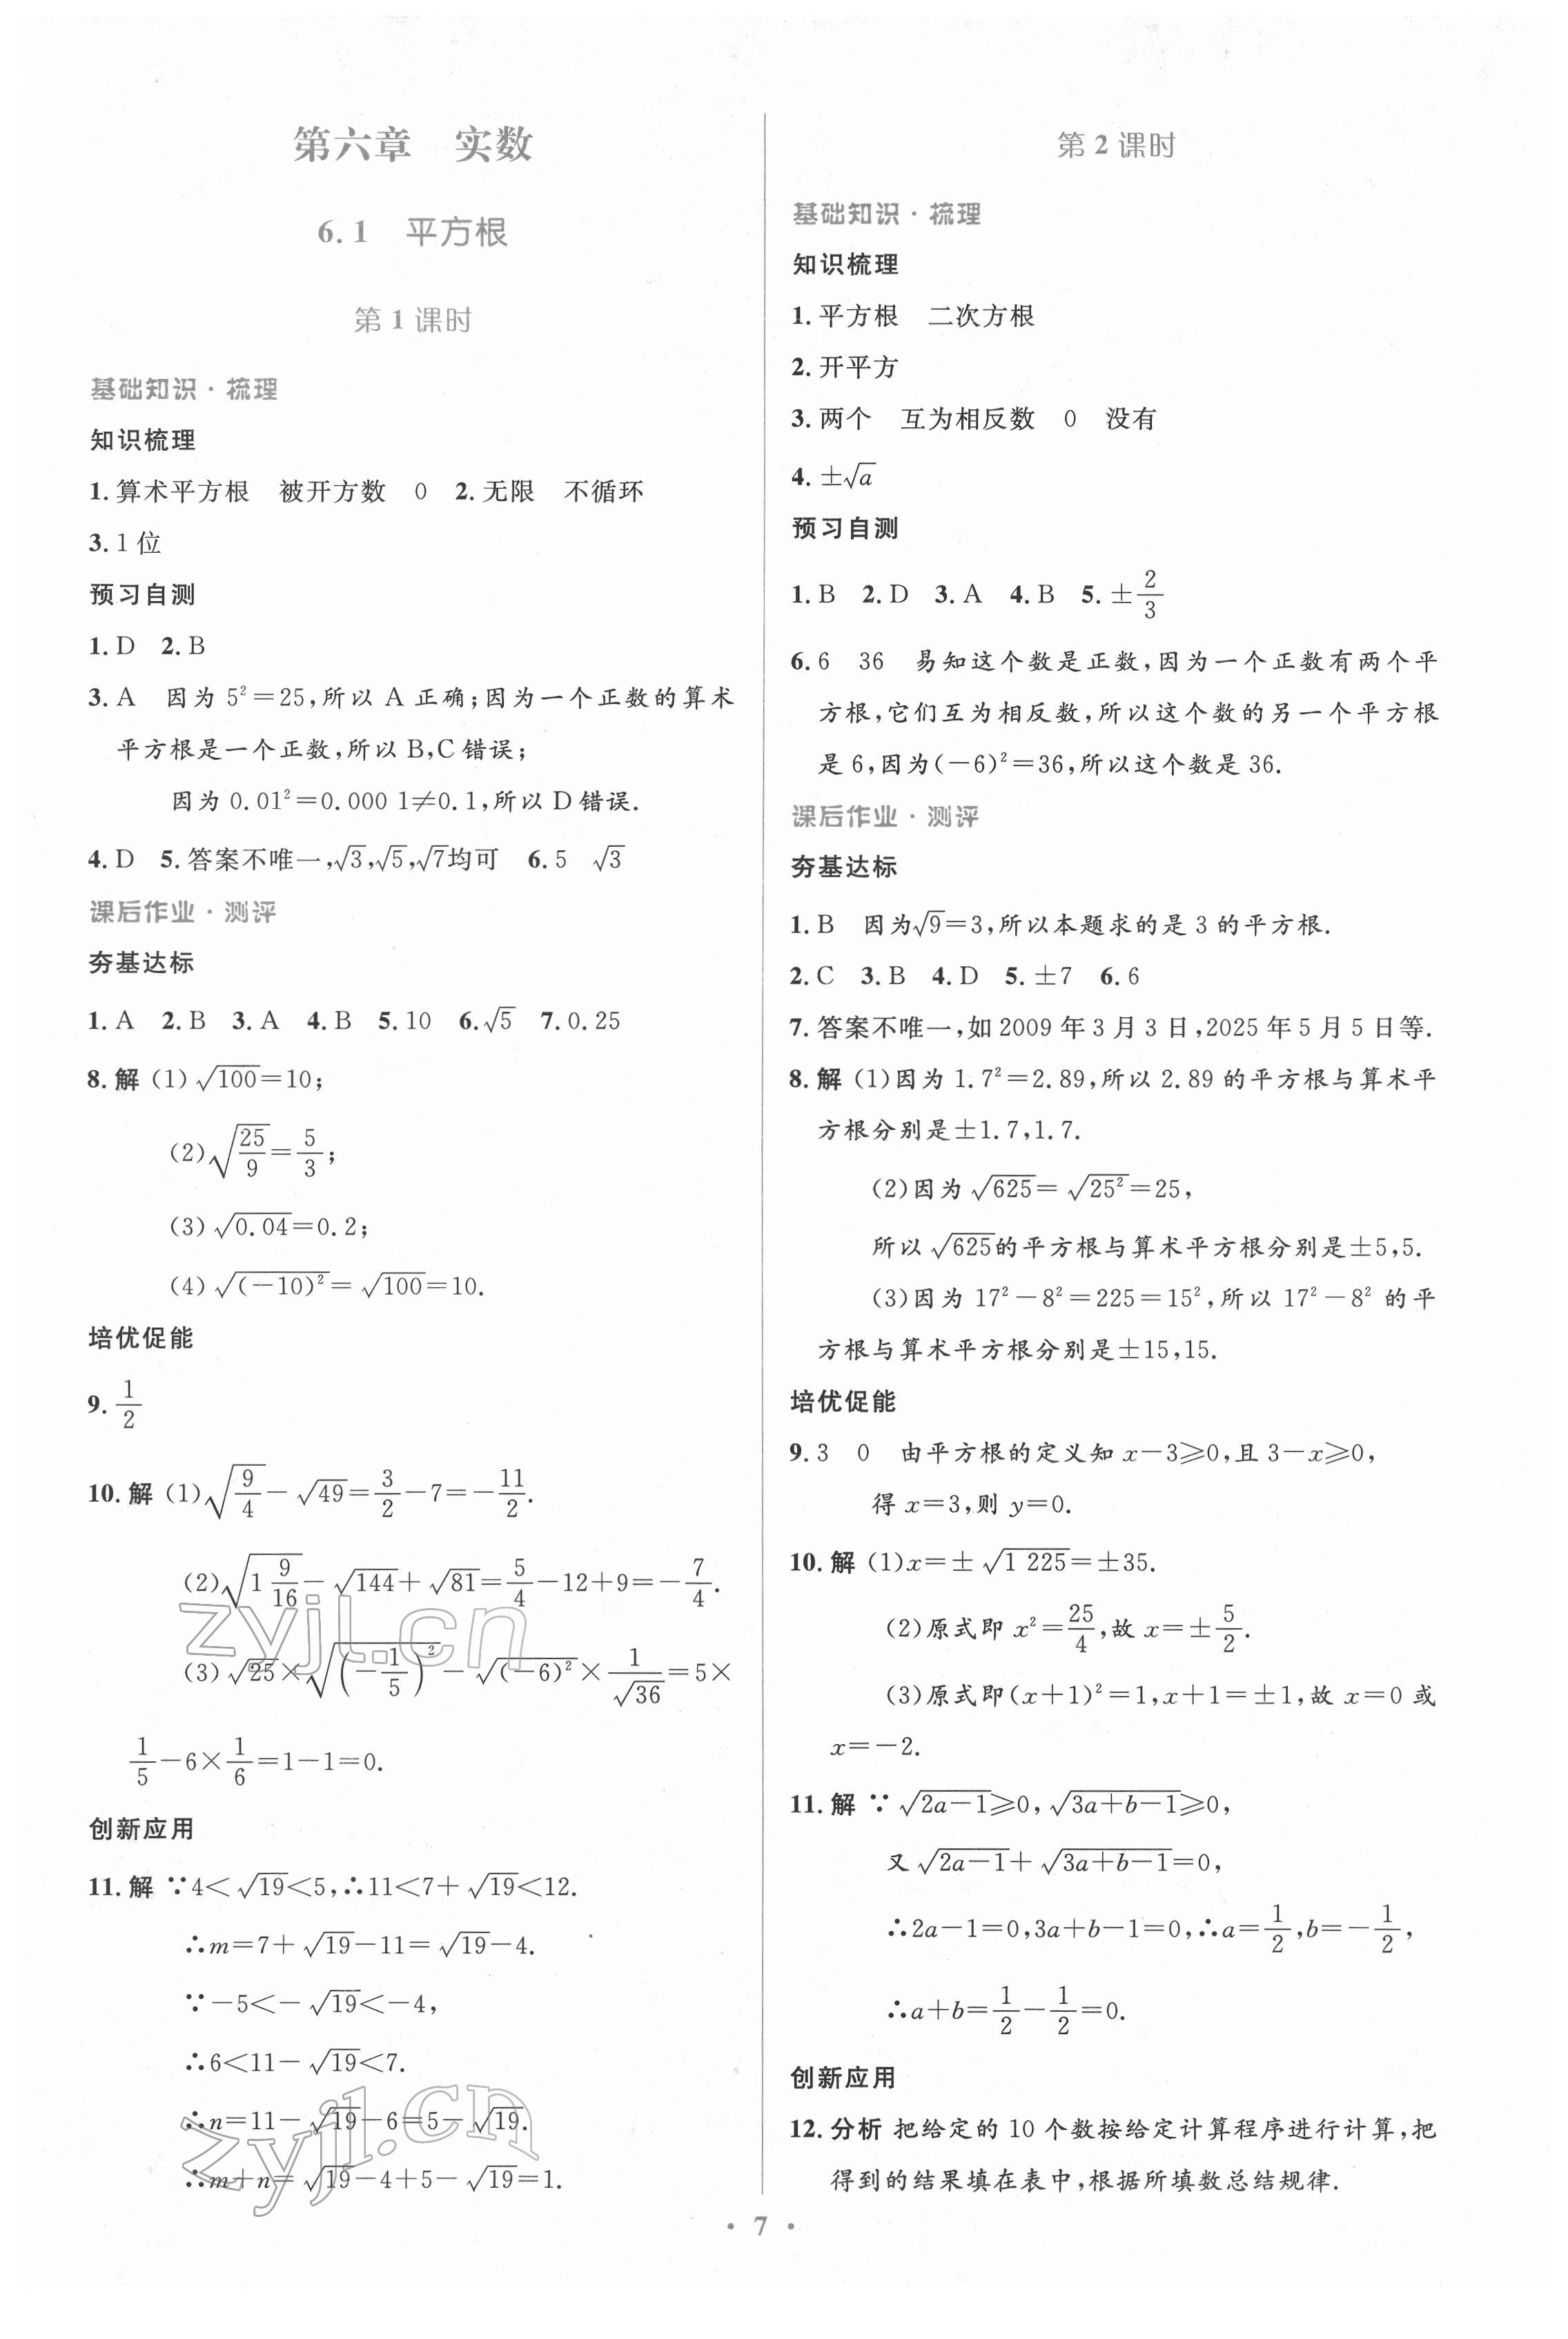 第六章 实数
6.1 平方根
第1课时
基础知识·梳理
知识梳理
1.算术平方根 被开方数 0 2.无限 不循环
3.1位
预习自测
1.D 2.B
3.A 因为 5²=25,所以 A 正确;因为一个正数的算术
平方根是一个正数,所以 B,C 错误;
因为 0.01²=0.000 1≠0.1,所以 D 错误.
4.D 5.答案不唯一,√3,√5,√7均可 6.5 √3
课后作业·测评
夯基达标
1.A 2.B 3.A 4.B 5.10 6.√5 7.0.25
8.解 (1)√100=10;
(2)√(25/9)=5/3;
(3)√0.04=0.2;
(4)√(-10)²=√100=10.
培优促能
9.1/2
10.解 (1)√(9/4)-√49=3/2-7=-11/2.
(2)√(1 9/16)-√144+√81=5/4-12+9=-7/4.
(3)√25×√(-1/5)²-√(-6)²×1/√36=5×
1/5-6×1/6=1-1=0.
创新应用
11.解 ∵4<√19<5,∴11<7+√19<12.
∴m=7+√19-11=√19-4.
∵-5<-√19<-4,
∴6<11-√19<7.
∴n=11-√19-6=5-√19.
∴m+n=√19-4+5-√19=1.
第2课时
基础知识·梳理
知识梳理
1.平方根 二次方根
2.开平方
3.两个 互为相反数 0 没有
4.±√a
预习自测
1.B 2.D 3.A 4.B 5.±2/3
6.6 36 易知这个数是正数,因为一个正数有两个平
方根,它们互为相反数,所以这个数的另一个平方根
是 6,因为(-6)²=36,所以这个数是 36.
课后作业·测评
夯基达标
1.B 因为√9=3,所以本题求的是 3 的平方根.
2.C 3.B 4.D 5.±7 6.6
7.答案不唯一,如 2009 年 3 月 3 日,2025 年 5 月 5 日等.
8.解 (1)因为 1.7²=2.89,所以 2.89 的平方根与算术平
方根分别是±1.7,1.7.
(2)因为√625=√25²=25,
所以√625的平方根与算术平方根分别是±5,5.
(3)因为 17²-8²=225=15²,所以 17²-8² 的平
方根与算术平方根分别是±15,15.
培优促能
9.3 0 由平方根的定义知 x-3⩾0,且 3-x⩾0,
得 x=3,则 y=0.
10.解 (1)x=±√1 225=±35.
(2)原式即 x²=25/4,故 x=±5/2.
(3)原式即(x+1)²=1,x+1=±1,故 x=0 或
x=-2.
11.解 ∵√(2a-1)⩾0,√(3a+b-1)⩾0,
又√(2a-1)+√(3a+b-1)=0,
∴2a-1=0,3a+b-1=0,∴a=1/2,b=-1/2,
∴a+b=1/2-1/2=0.
创新应用
12.分析 把给定的 10 个数按给定计算程序进行计算,把
得到的结果填在表中,根据所填数总结规律.
zyjl.cn
zyjl.cn
· 7 ·